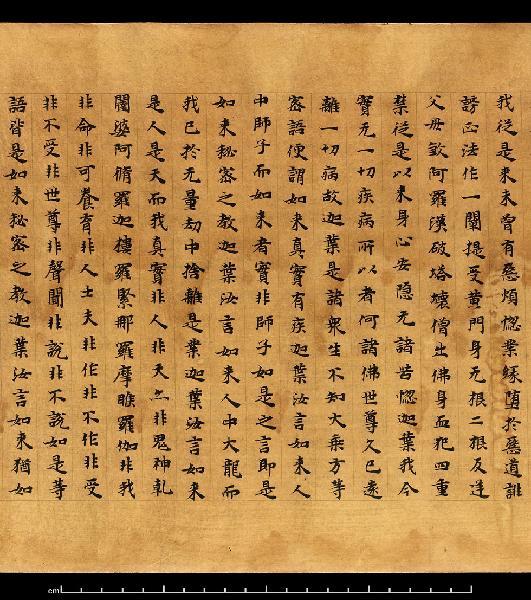 我從是來未曾有惡煩惱業緣墮於惡道誹
謗正法作一闡提受黃門身无根二根反逆
父母煞阿羅漢破塔壞僧出佛身血犯四重
禁從是以來身心安隱无諸苦惱迦葉我今
實无一切疾病所以者何諸佛世尊久已遠
離一切病故迦葉是諸衆生不知大乘方等
密語便謂如來真實有疾迦葉汝言如來人
中師子而如來者實非師子如是之言即是
如來秘密之教迦葉汝言如來人中大龍而
我已於无量劫中捨離是業迦葉汝言如來
是人是天而我真實非人非天亦非鬼神乹
闥婆阿脩羅迦樓羅緊那羅摩睺羅伽非我
非命非可養育非人士夫非作非不作非受
非不受非世尊非聲聞非說非不說如是等
語皆是如來秘密之教迦葉汝言如來猶如
cm